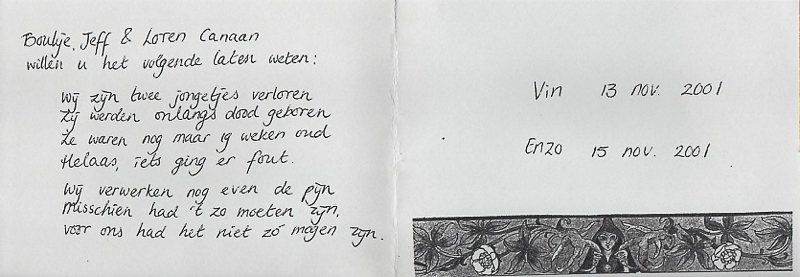 Boukje, Jeff & Loren Canaan
willen u het volgende laten weten:
Wij zijn twee jongetjes verloren
Zij werden onlangs dood geboren
Ze waren nog maar 19 weken oud
Helaas, iets ging er fout.
Wij verwerken nog even de pijn
Misschien had 't zo moeten zijn,
voor ons had het niet zó mogen zijn.
Vin 13 nov. 2001
Enzo 15 nov. 2001